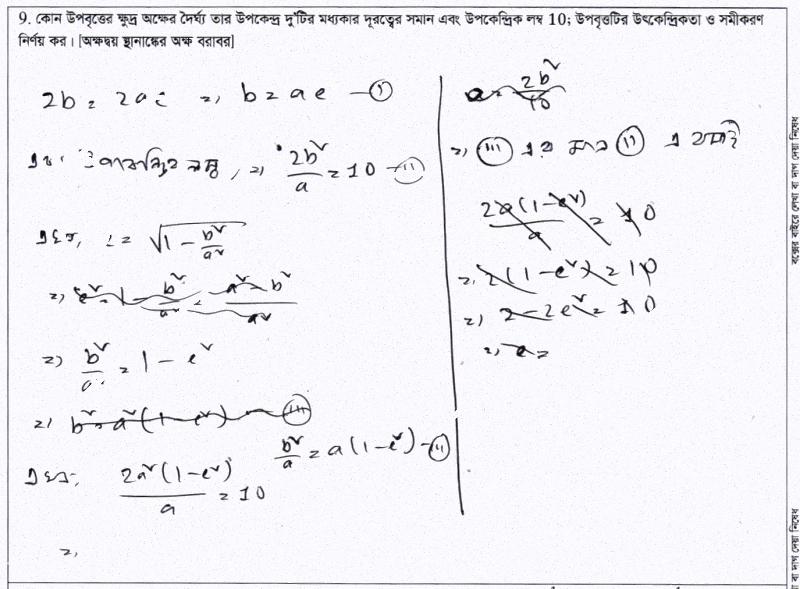 9. কোন উপবৃত্তের ক্ষুদ্র অক্ষের দৈর্ঘ্য তার উপকেন্দ্র দু'টির মধ্যকার দূরত্বের সমান এবং উপকেন্দ্রিক লম্ব 10; উপবৃত্তটির উৎকেন্দ্রিকতা ও সমীকরণ
নির্ণয় কর। [অক্ষদ্বয় স্থানাঙ্কের অক্ষ বরাবর]
2b = 2ae ⇒ b = ae —(i)
উপকেন্দ্রিক লম্ব, ⇒ 2b²/a = 10 —(ii)
e = √(1 - b²/a²)
⇒ b²/a² = 1 - e²
⇒ b² = a²(1 - e²) —(iii)
b²/a = a(1 - e²) —(iii)
2a²(1 - e²)/a = 10
⇒
2b²/10
⇒ (iii) এর মান (ii) এ বসাই
2a(1 - e²)/a = 10
⇒ 2(1 - e²) = 10
⇒ 2 - 2e² = 10
⇒ e =